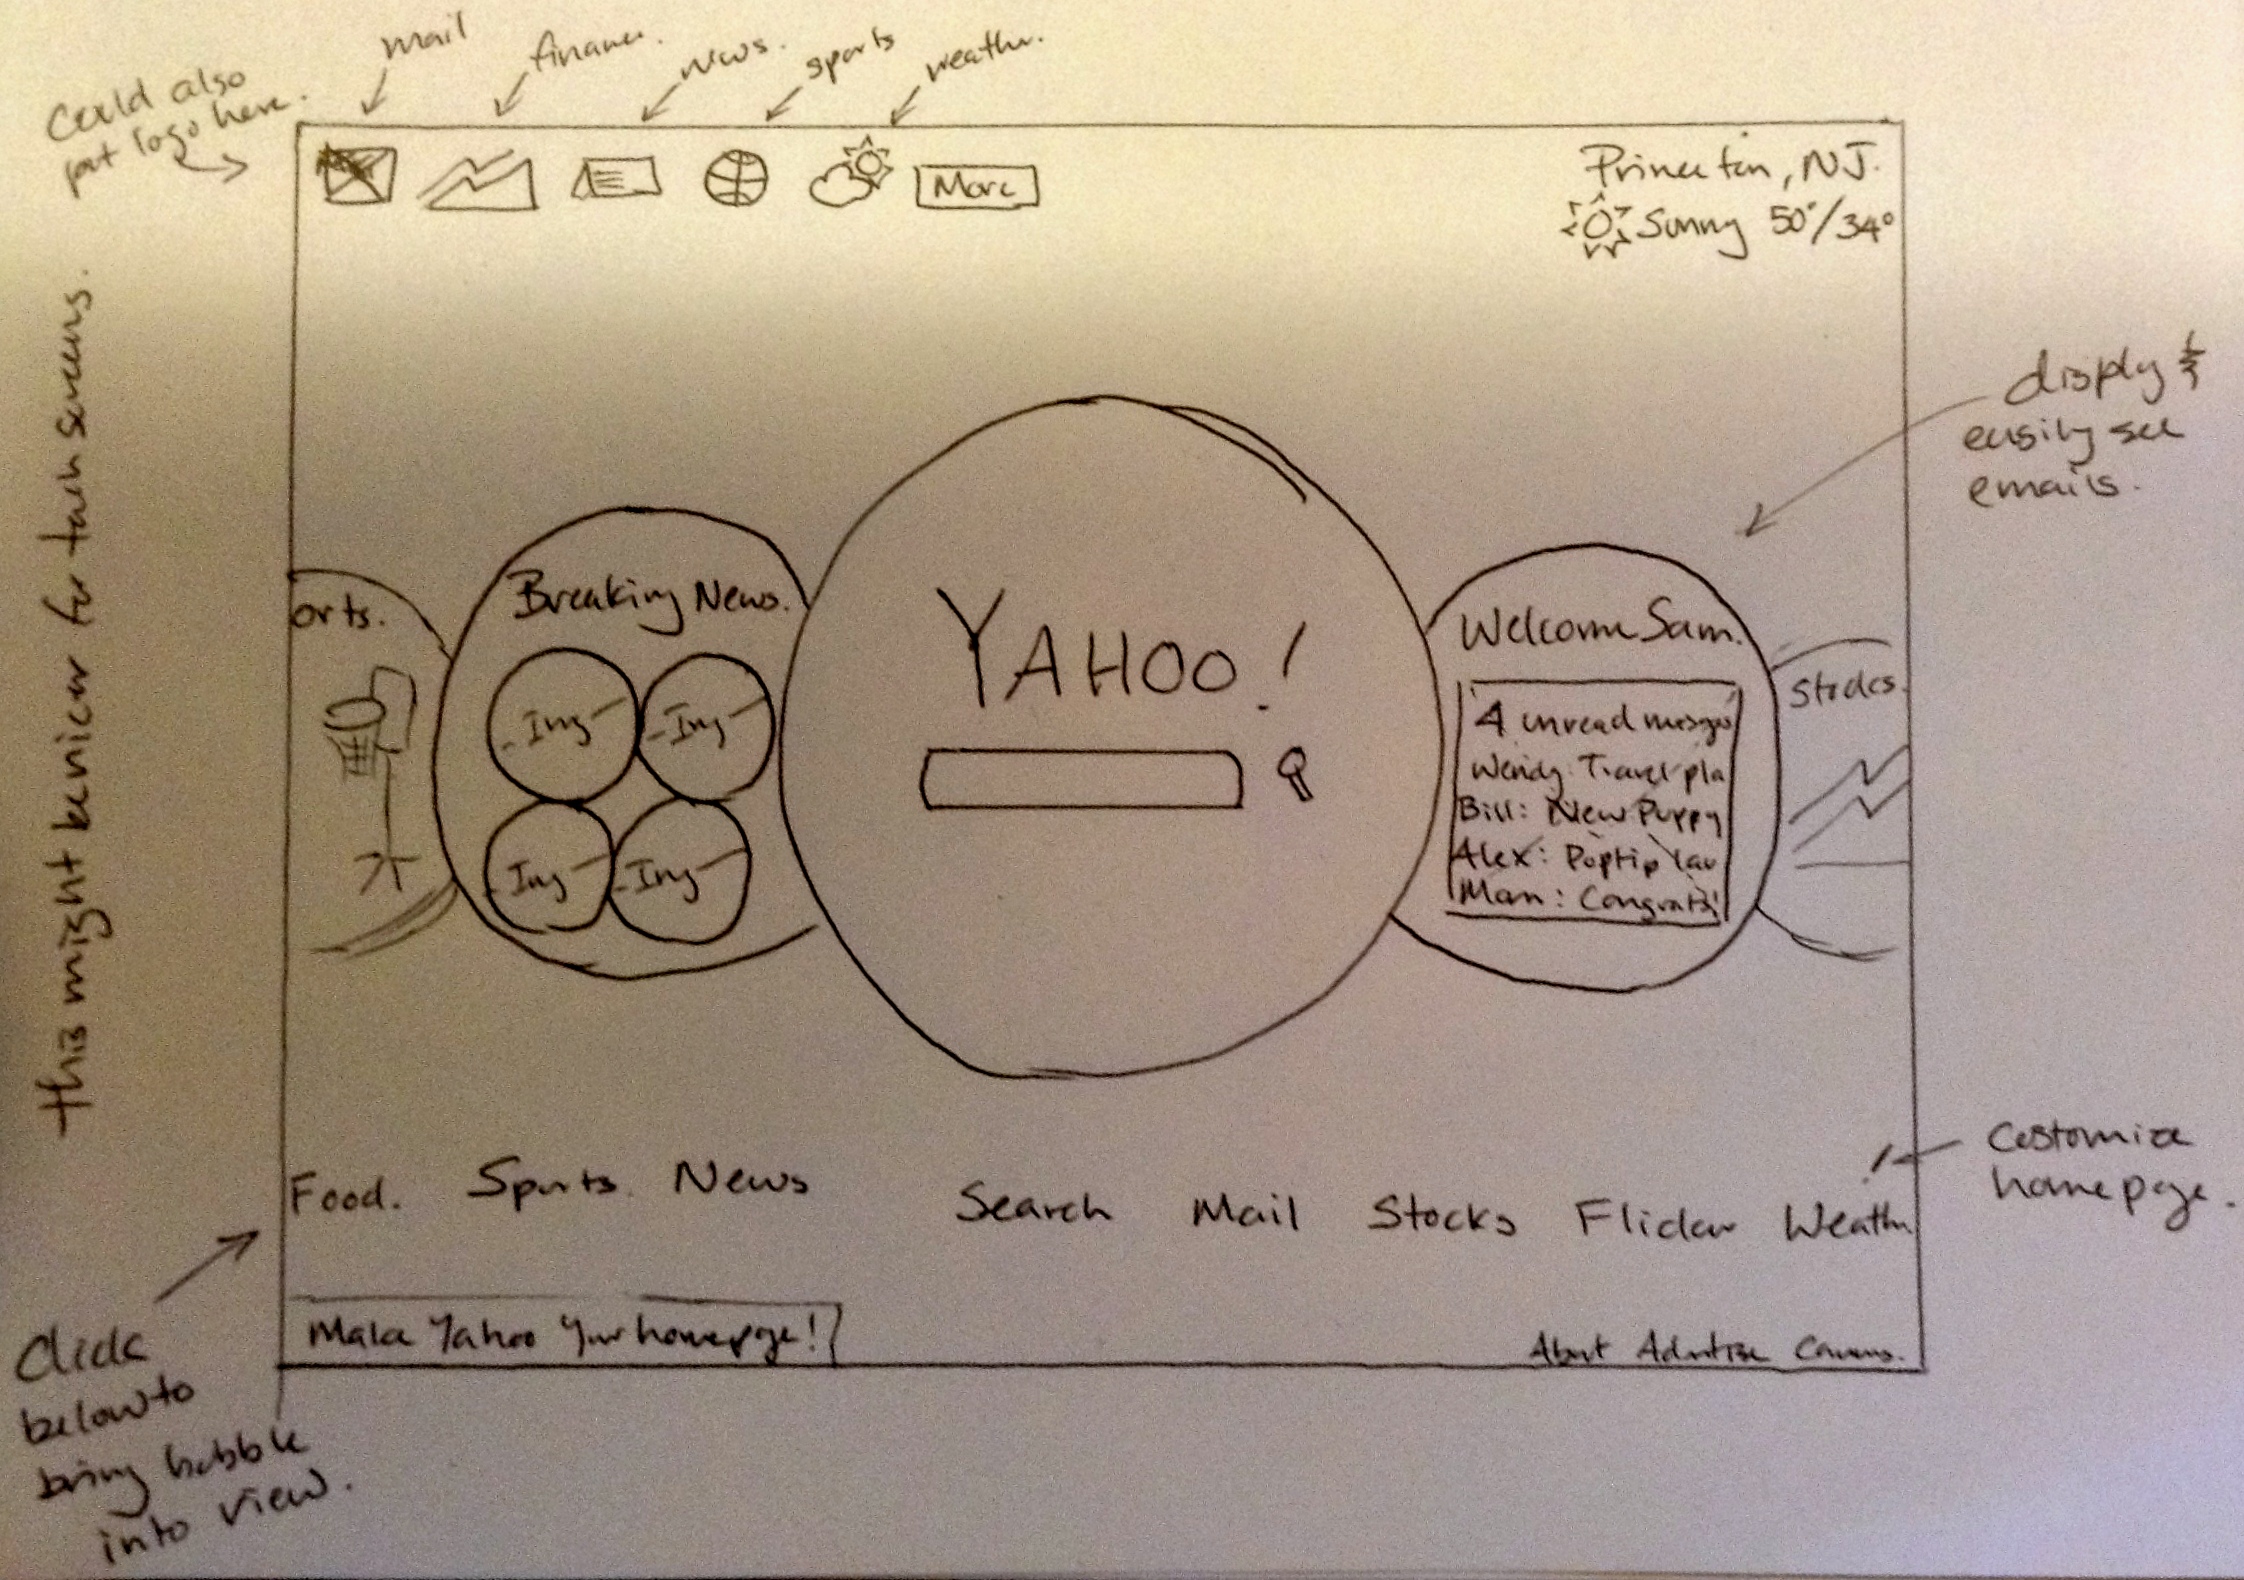 mail
finance.
news.
sports
weather.
Could also
put logo here.
More
Princeton, NJ.
Sunny 50°/34°
this might be nicer for touch screens.
display &
easily see
emails.
orts.
Breaking News.
Img
Img
Img
Img
YAHOO!
Welcome Sam.
4 unread messges
Wendy: Travel pla
Bill: New Puppy
Alex: Poptip lau
Mom: Congrats!
Stocks.
Customize
homepage.
Food.
Sports.
News
Search
Mail
Stocks
Flickr
Weathr
!
Click
below to
bring bubble
into view.
Make Yahoo Your homepage!
About Advertise